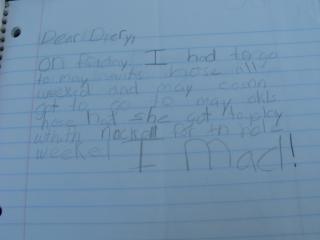 Dear Diery,
on friday I had to go
to may ants those all
weeked and may comn
got to go to may
hose but she got to play
whith for th hole
weeked I Mad!